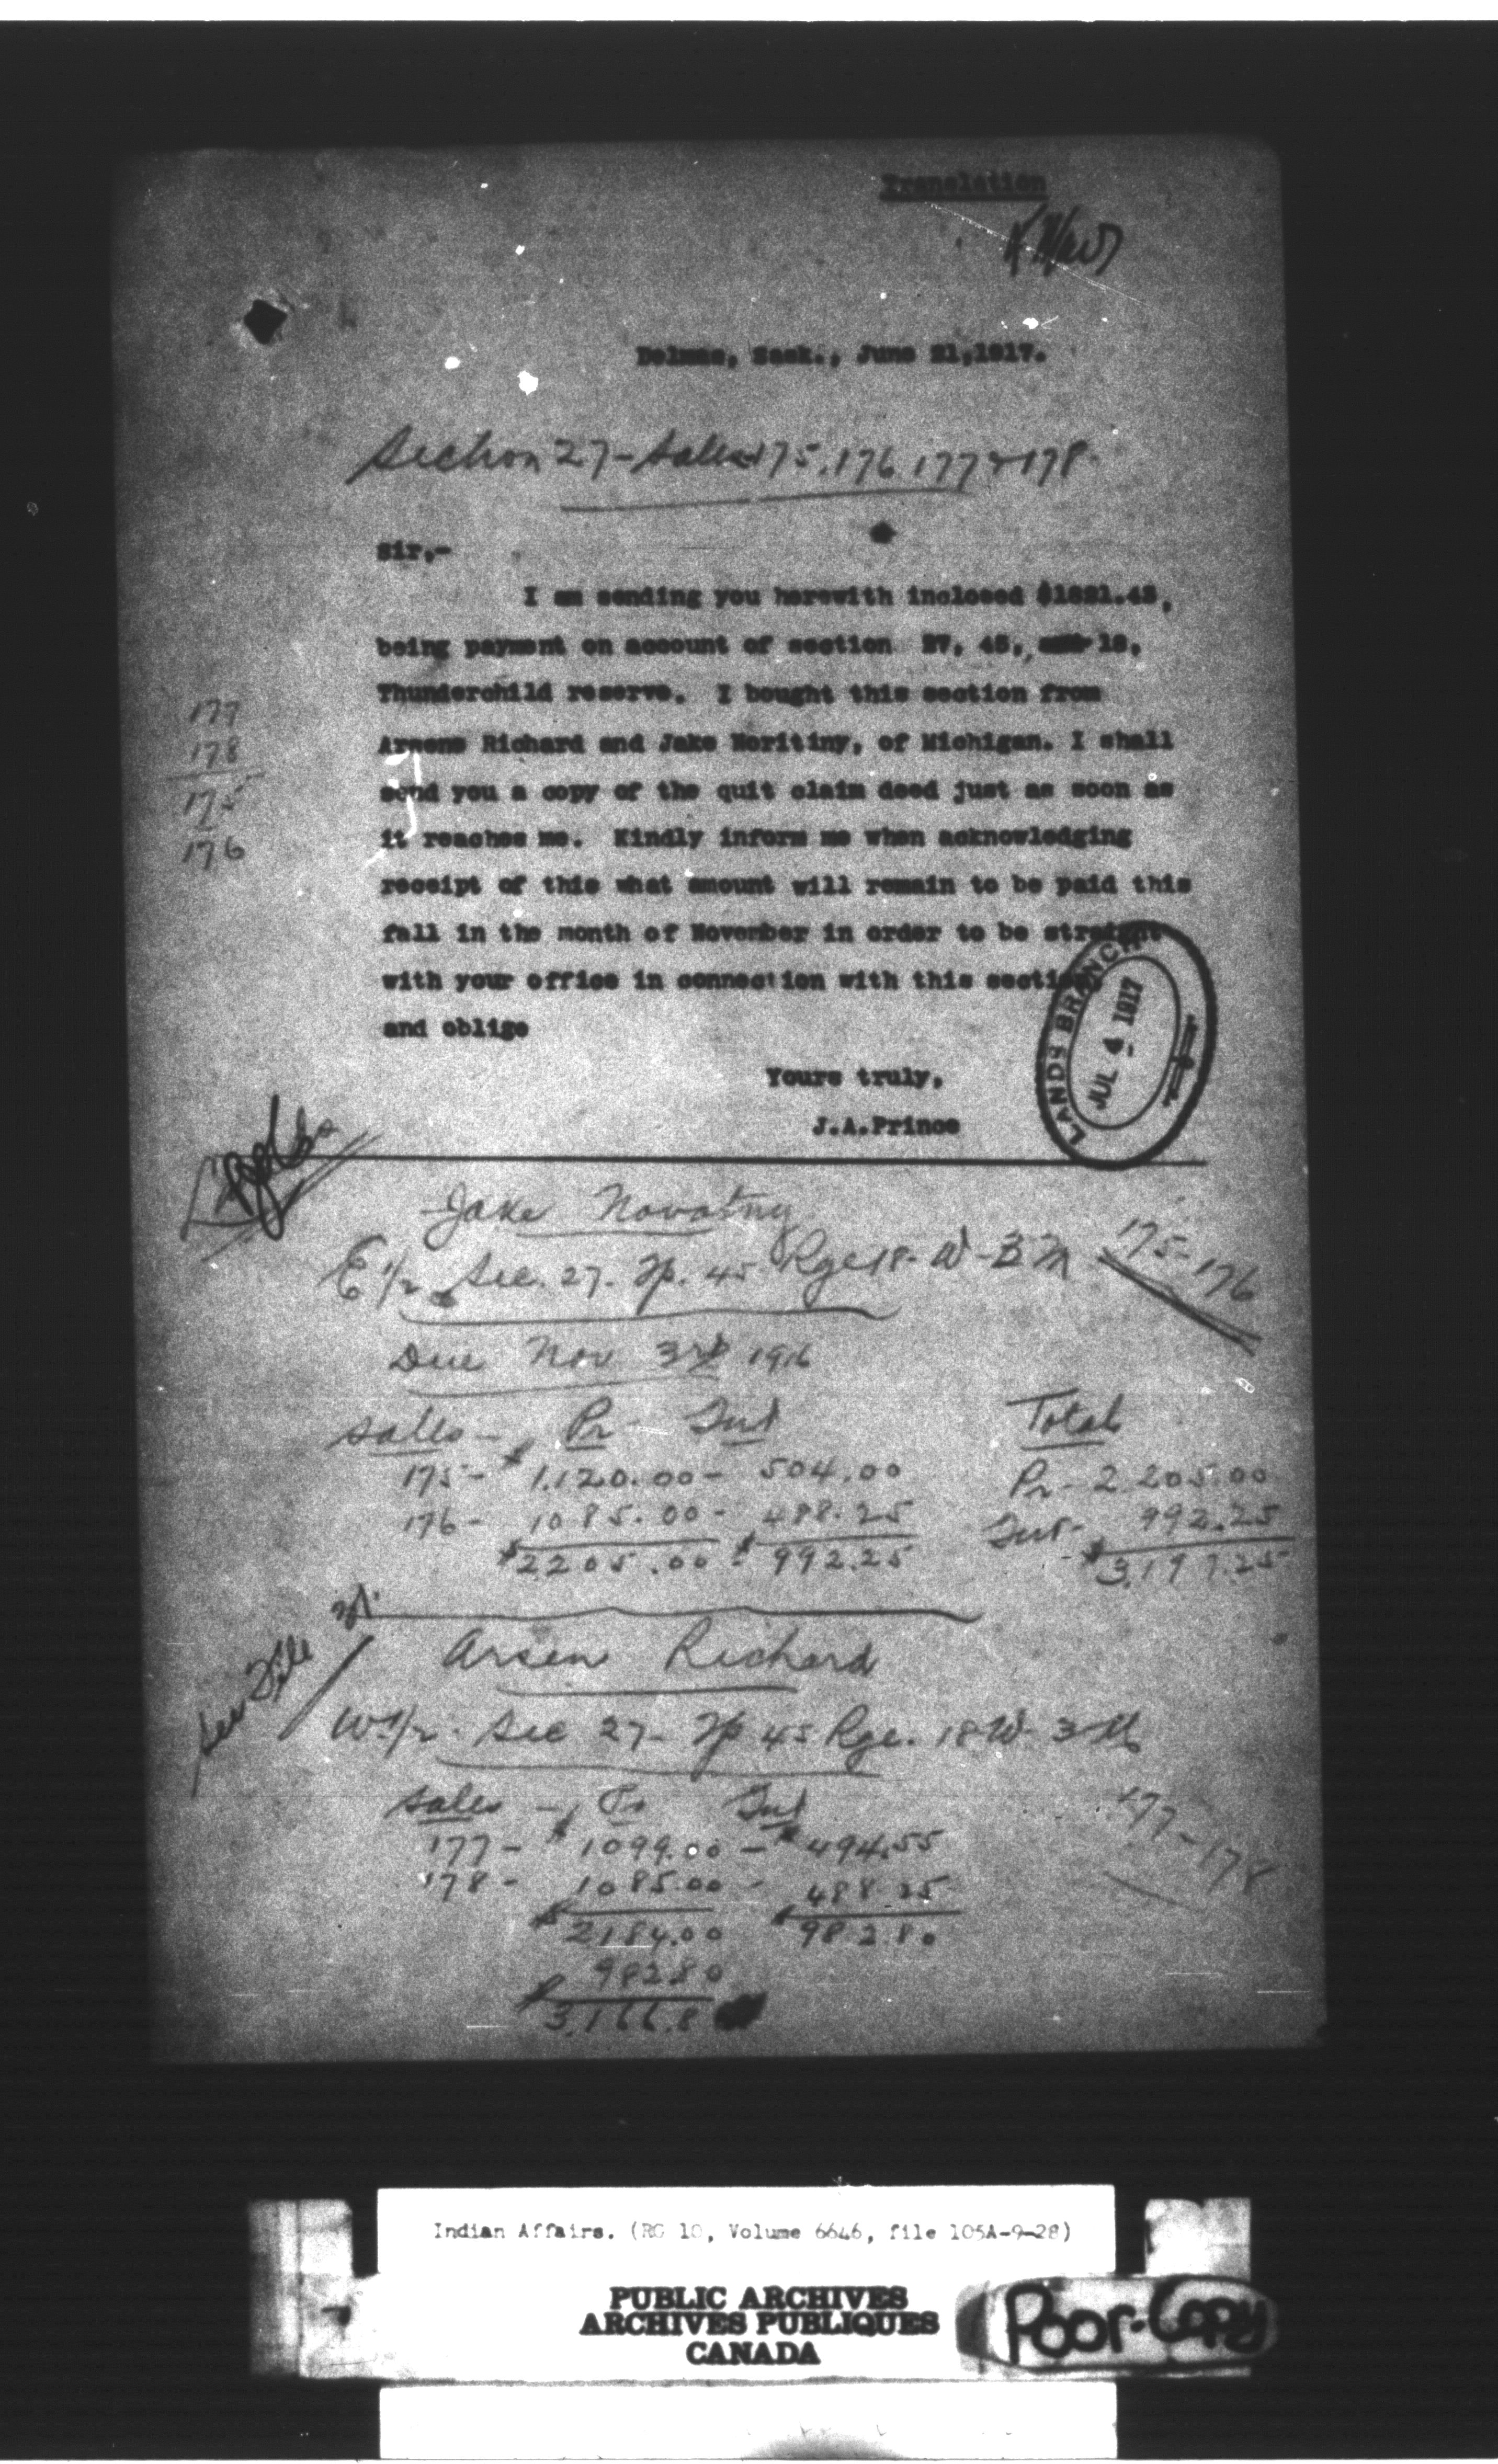 Translation
Delmas, Sask., June 21,1917.
Section 27 - Sales 175, 176, 177 & 178.
Sir,-
I am sending you herewith inclosed
being payment on account of section 27, 45, 18,
Thunderchild reserve. I bought this section from
177
Arsene Richard and Jake Noritiny, of Michigan. I shall
178
send you a copy of the quit claim deed just as soon as
175
it reaches me. Kindly inform me when acknowledging
176
receipt of this what amount will remain to be paid this
fall in the month of November in order to be straight
with your office in connection with this section
and oblige
LANDS BRANCH
JUL 4 1917
Yours truly,
J.A.Prince
Jake Novotny
E 1/2 Sec. 27 - Tp. 45 Rge 18 - W - 3 M
175 - 176
Due Nov 3rd 1916
Sales - Pr - Int
Total
175 - $ 1,120.00 - 504.00
Pr - 2205.00
176 - 1085.00 - 488.25
Int - 992.25
$2205.00 - $ 992.25
$3,197.25
See File
Arsen Richard
W 1/2 - Sec 27 - Tp 45 Rge. 18 W 3 M
Sales - Pr Int
177 - $ 1099.00 - $ 494.55
177 - 178
178 - 1085.00 - 488.25
$ 2184.00 $ 982.80
982.80
$ 3,166.8
Indian Affairs. (RG 10, Volume 6646, file 105A-9-28)
PUBLIC ARCHIVES
ARCHIVES PUBLIQUES
CANADA
Poor-Copy